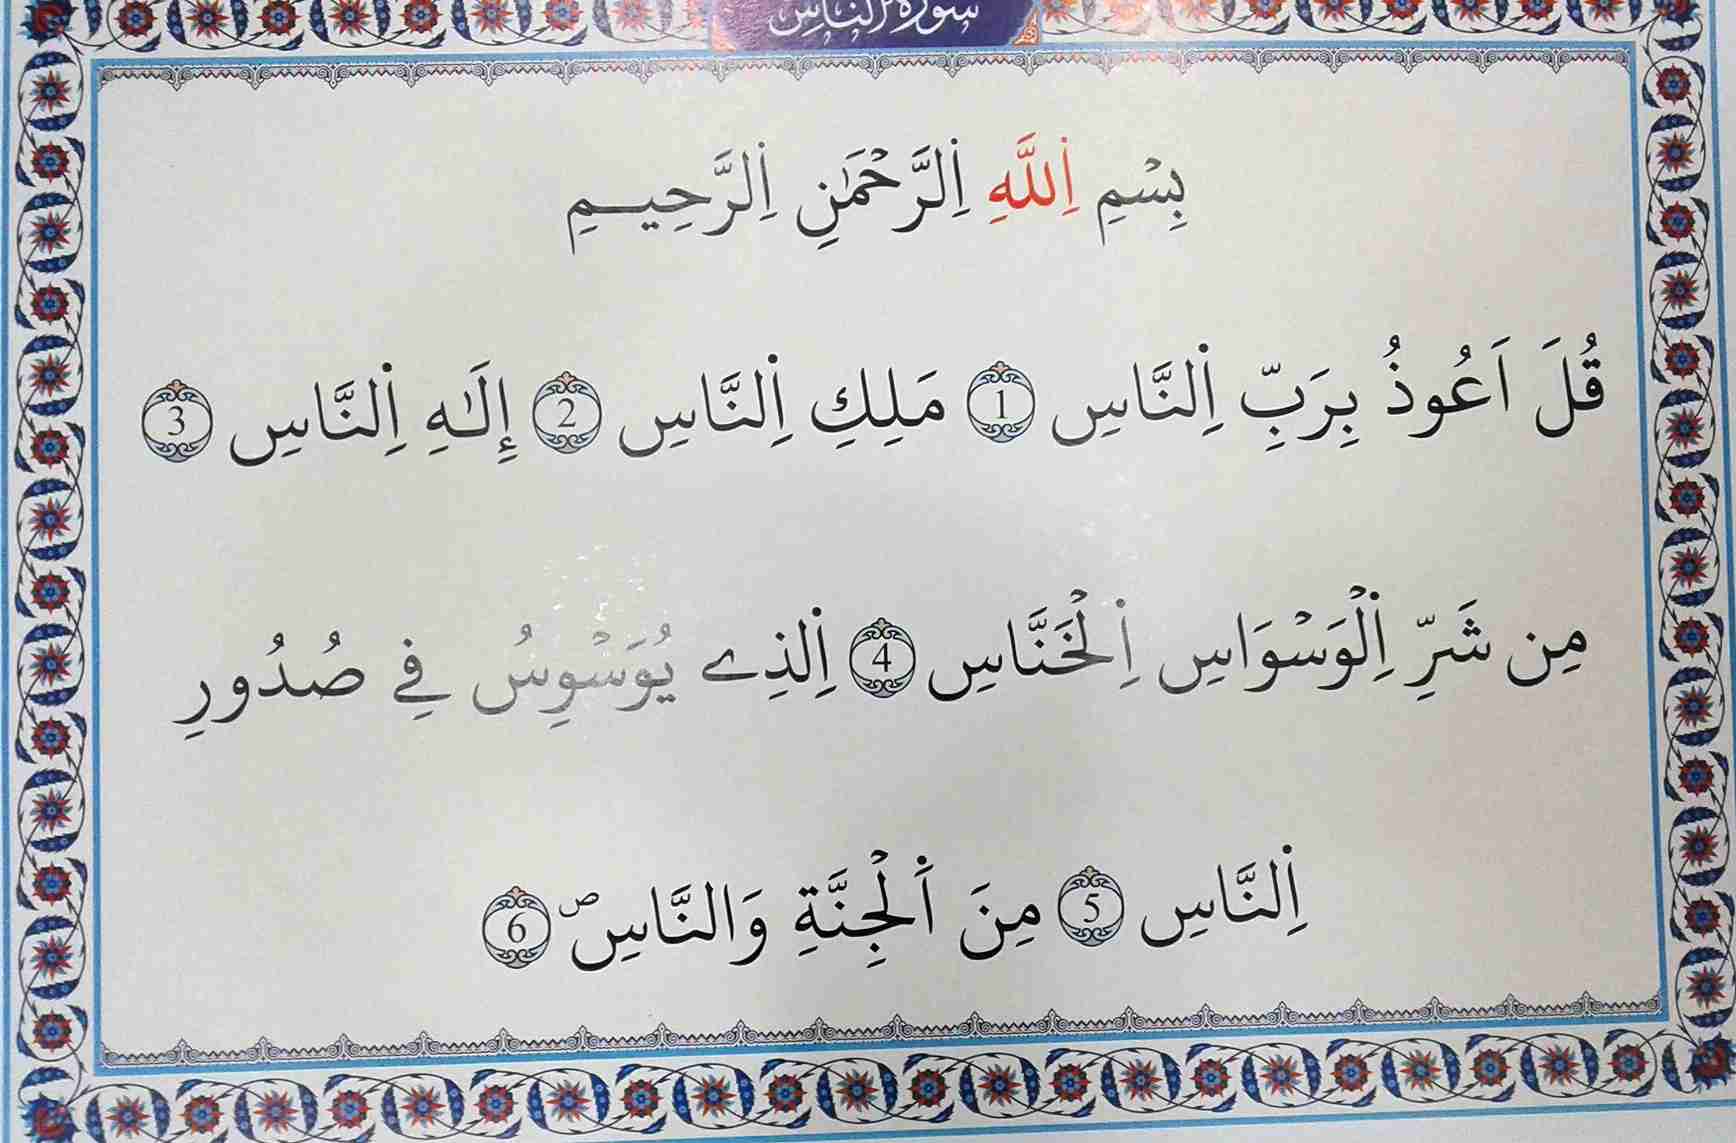 سورة الناس
بِسْمِ اِ۬للَّهِ اِ۬لرَّحْمَٰنِ اِ۬لرَّحِيمِ
قُلَ اَعُوذُ بِرَبِّ اِ۬لنَّاسِ 1 مَلِكِ اِ۬لنَّاسِ 2 إِلَٰهِ اِ۬لنَّاسِ 3
مِن شَرِّ اِ۬لْوَسْوَاسِ اِ۬لْخَنَّاسِ 4 اِ۬لذِے يُوَسْوِسُ فِے صُدُورِ
اِ۬لنَّاسِ 5 مِنَ اَ۬لْجِنَّةِ وَالنَّاسِ ص 6